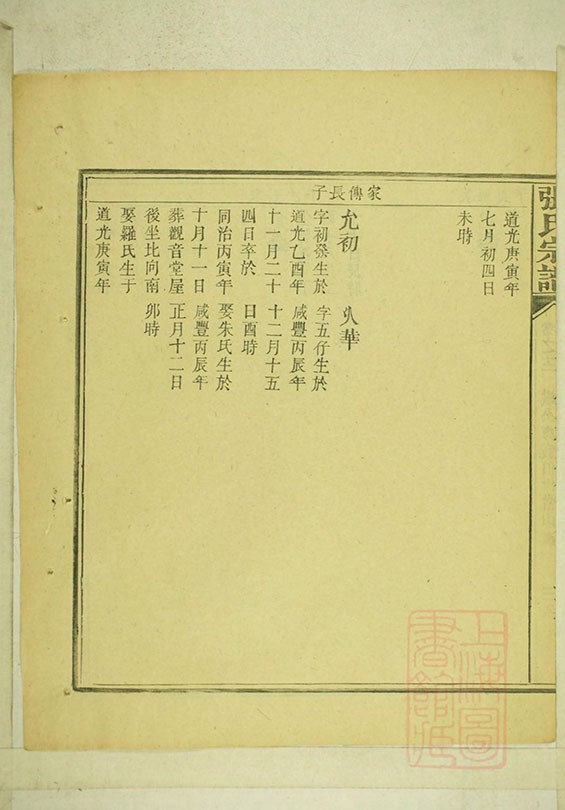 張氏宗譜
道光庚寅年
七月初四日
未時
家傳長子
允初
字初發生於
道光乙酉年
十一月二十
四日卒於
同治丙寅年
十月十一日
葬觀音堂屋
後坐比向南
娶羅氏生于
道光庚寅年
華
字五仔生於
咸豐丙辰年
十二月十五
日酉時
娶朱氏生於
咸豐丙辰年
正月十二日
卯時
上海圖
書館藏